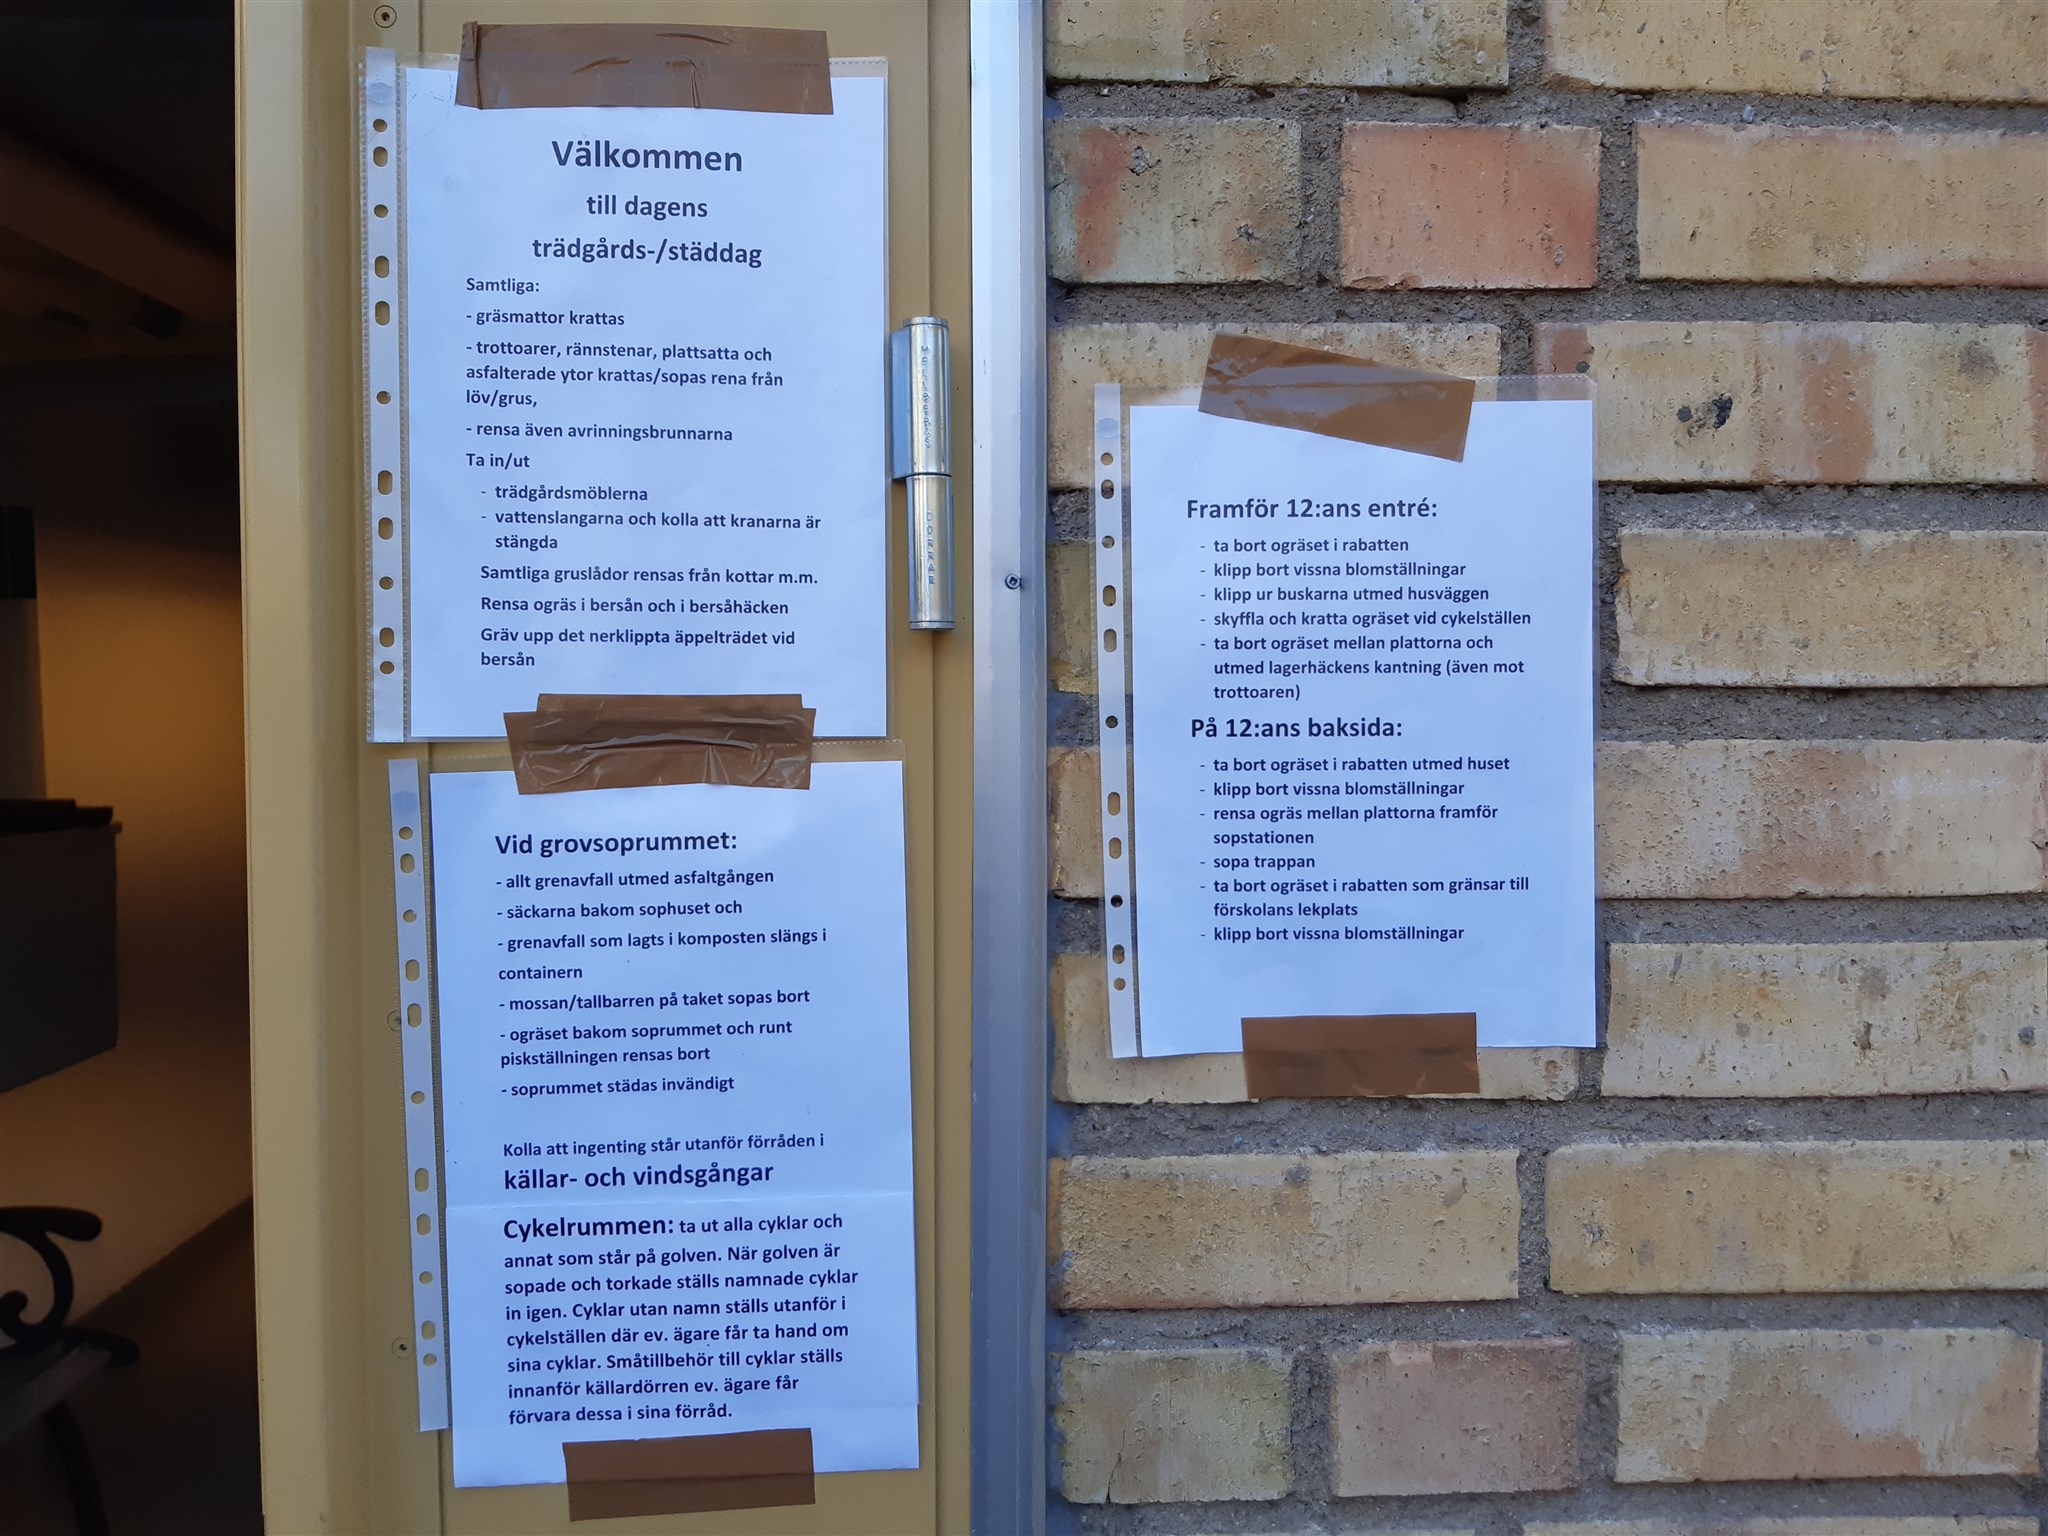 Välkommen
till dagens
trädgårds-/städdag
Samtliga:
- gräsmattor krattas
- trottoarer, rännstenar, plattsatta och
asfalterade ytor krattas/sopas rena från
löv/grus,
- rensa även avrinningsbrunnarna
Ta in/ut
- trädgårdsmöblerna
- vattenslangarna och kolla att kranarna är
stängda
Samtliga gruslådor rensas från kottar m.m.
Rensa ogräs i bersån och i bersåhäcken
Gräv upp det nerklippta äppelträdet vid
bersån
Vid grovsoprummet:
- allt grenavfall utmed asfaltgången
- säckarna bakom sophuset och
- grenavfall som lagts i komposten slängs i
containern
- mossan/tallbarren på taket sopas bort
- ogräset bakom soprummet och runt
piskställningen rensas bort
- soprummet städas invändigt
Kolla att ingenting står utanför förråden i
källar- och vindsgångar
Cykelrummen: ta ut alla cyklar och
annat som står på golven. När golven är
sopade och torkade ställs namnade cyklar
in igen. Cyklar utan namn ställs utanför i
cykelställen där ev. ägare får ta hand om
sina cyklar. Småtillbehör till cyklar ställs
innanför källardörren ev. ägare får
förvara dessa i sina förråd.
DÖRRAR
Framför 12:ans entré:
- ta bort ogräset i rabatten
- klipp bort vissna blomställningar
- klipp ur buskarna utmed husväggen
- skyffla och kratta ogräset vid cykelställen
- ta bort ogräset mellan plattorna och
utmed lagerhäckens kantning (även mot
trottoaren)
På 12:ans baksida:
- ta bort ogräset i rabatten utmed huset
- klipp bort vissna blomställningar
- rensa ogräs mellan plattorna framför
sopstationen
- sopa trappan
- ta bort ogräset i rabatten som gränsar till
förskolans lekplats
- klipp bort vissna blomställningar